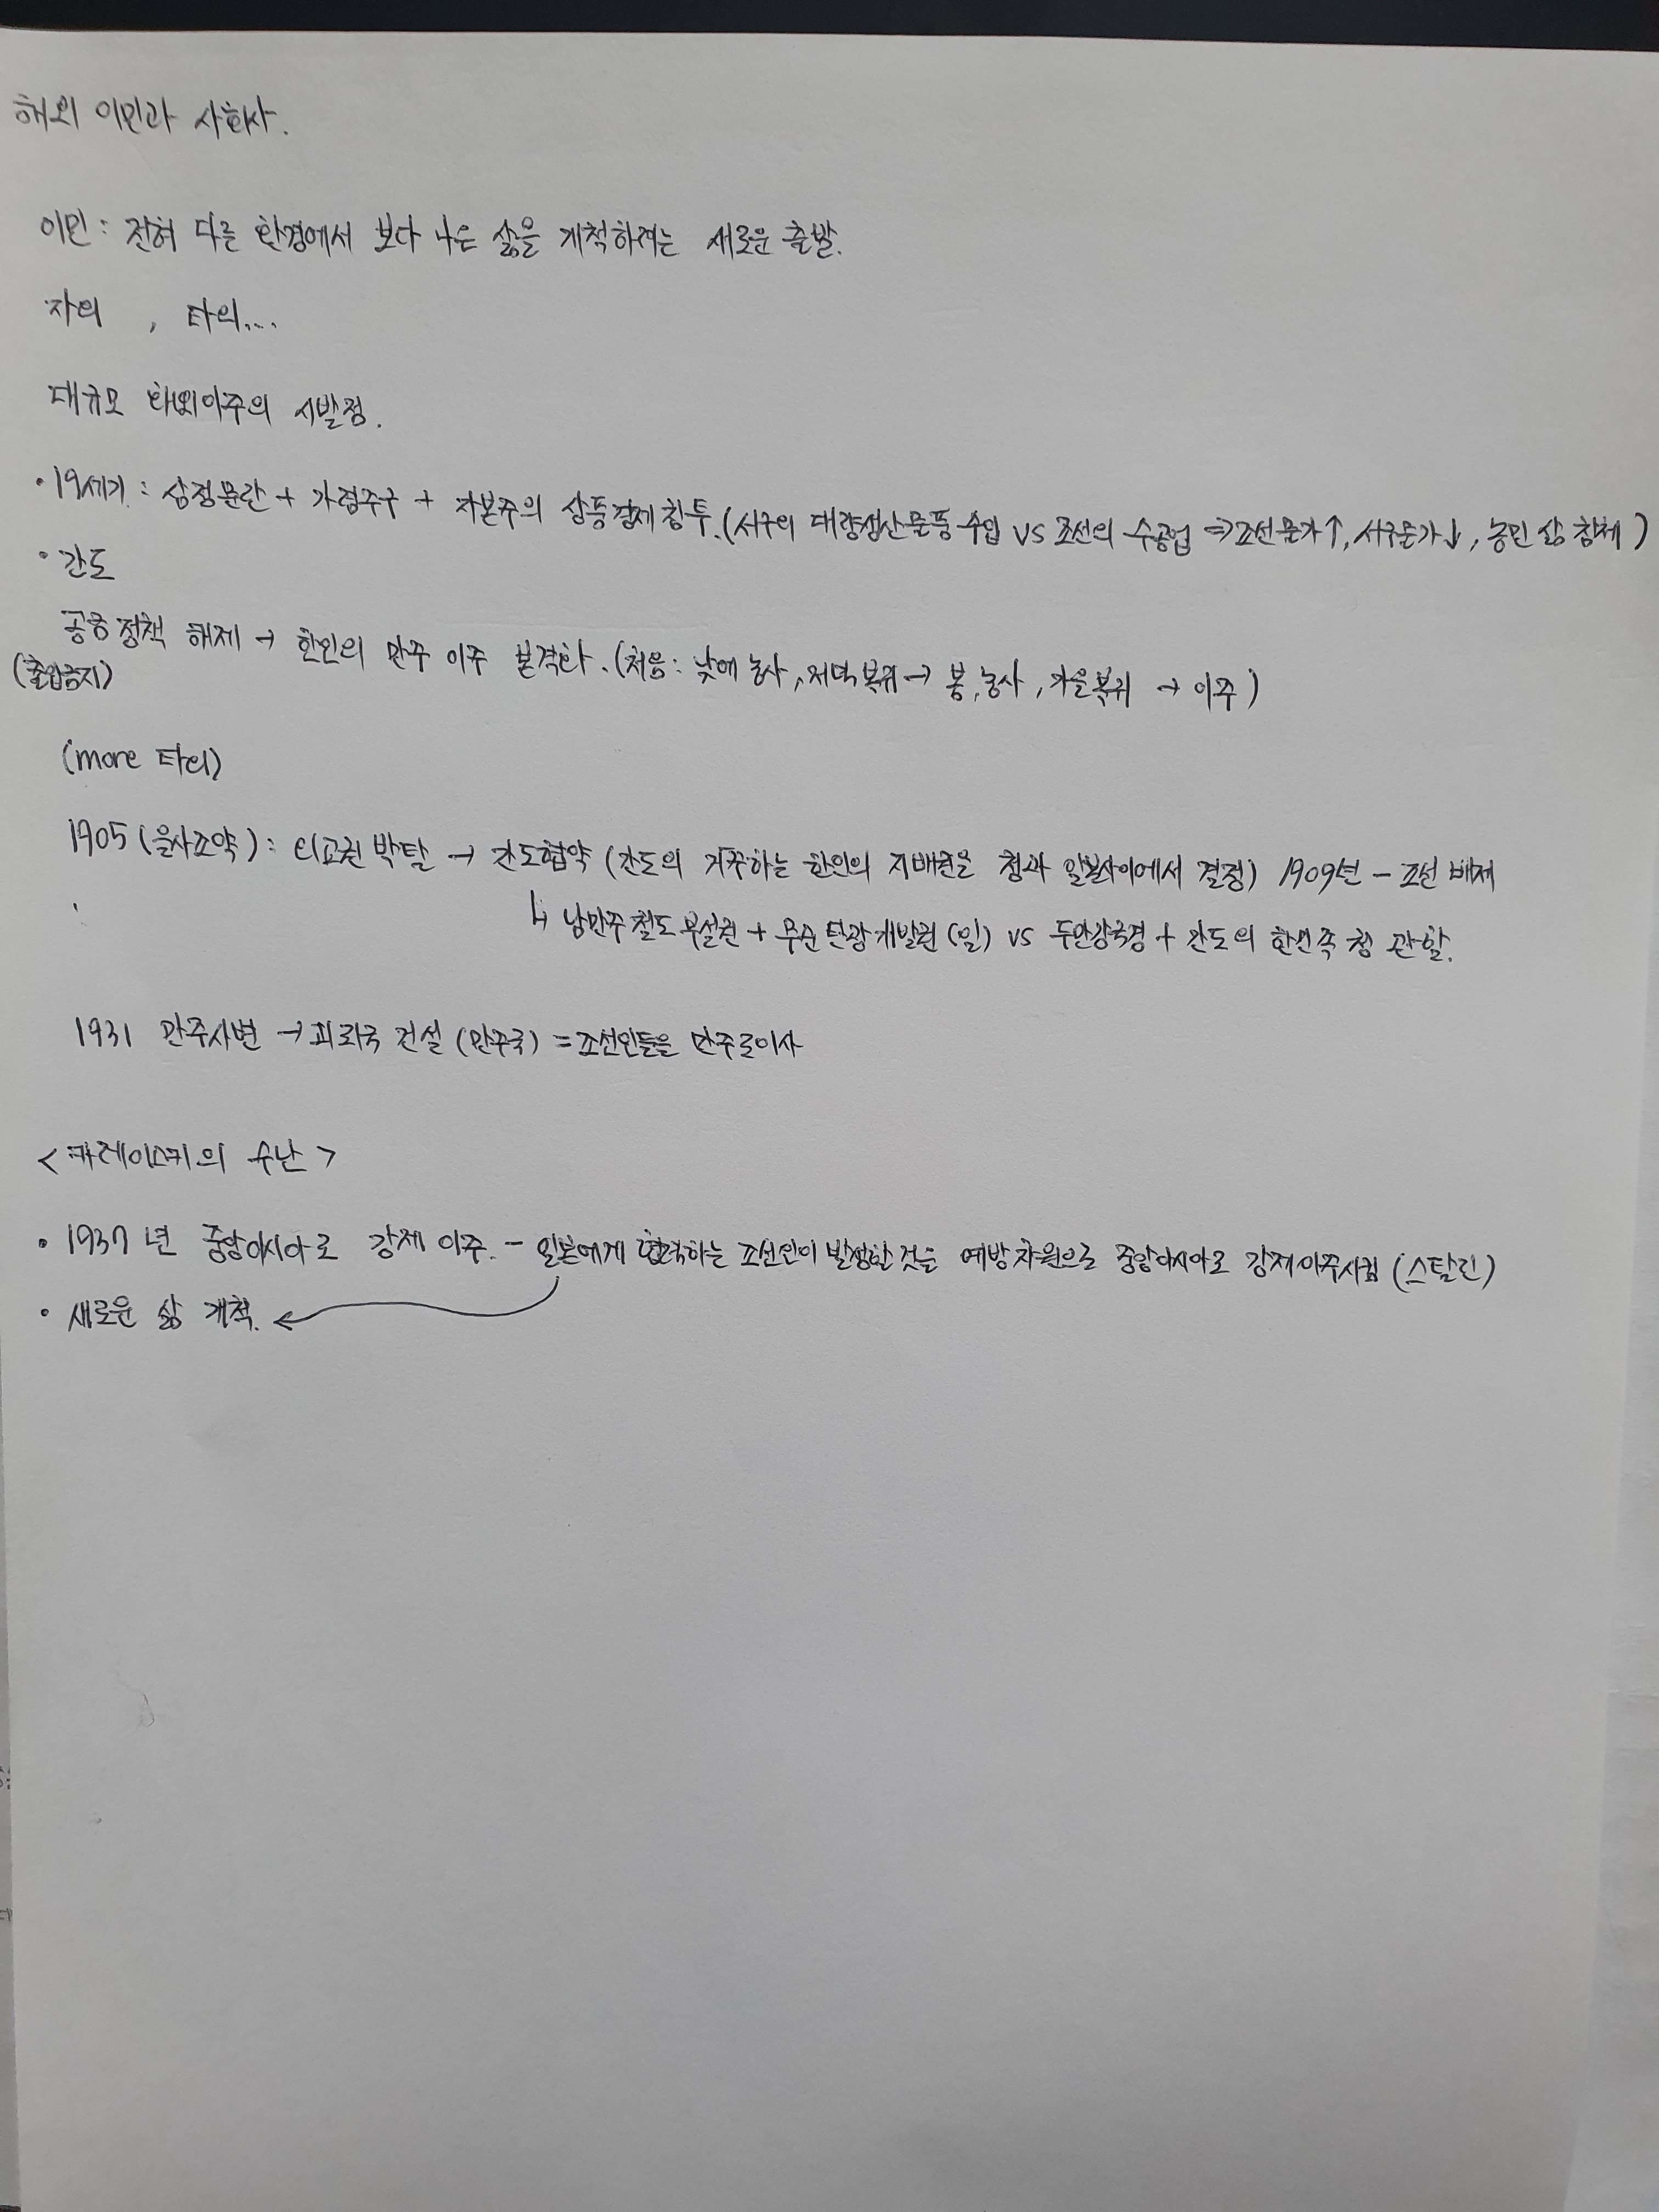 해외 이민과 사회사.
이민 : 전혀 다른 환경에서 보다 나은 삶을 개척하려는 새로운 출발.
·자의 , 타의....
대규모 해외이주의 시발점.
· 19세기 : 삼정문란 + 가렴주구 + 자본주의 상품경제 침투.(서구의 대량생산물품 수입 vs 조선의 수공업 ⇒ 조선물가↑, 서구물가↓, 농민 삶 침체)
· 간도
공금정책 해제 → 한인의 만주 이주 본격화. (처음: 낮에 농사, 저녁복귀 → 봄,농사, 가을복귀 → 이주)
(출입금지)
(more 타의)
1905 (을사조약) : 외교권 박탈 → 간도협약 (간도의 거주하는 한인의 지배권을 청과 일본사이에서 결정) 1909년 - 조선 배제
↳ 남만주 철도 부설권 + 무순 탄광 개발권 (일) vs 두만강국경 + 간도의 한인족 청 관할.
1931 만주사변 → 괴뢰국 건설 (만주국) = 조선인들을 만주로이사
< 카레이스키의 수난 >
· 1937년 중앙아시아로 강제 이주. - 일본에게 협력하는 조선인이 발생할 것을 예방 차원으로 중앙아시아로 강제이주시킴 (스탈린)
· 새로운 삶 개척. ←